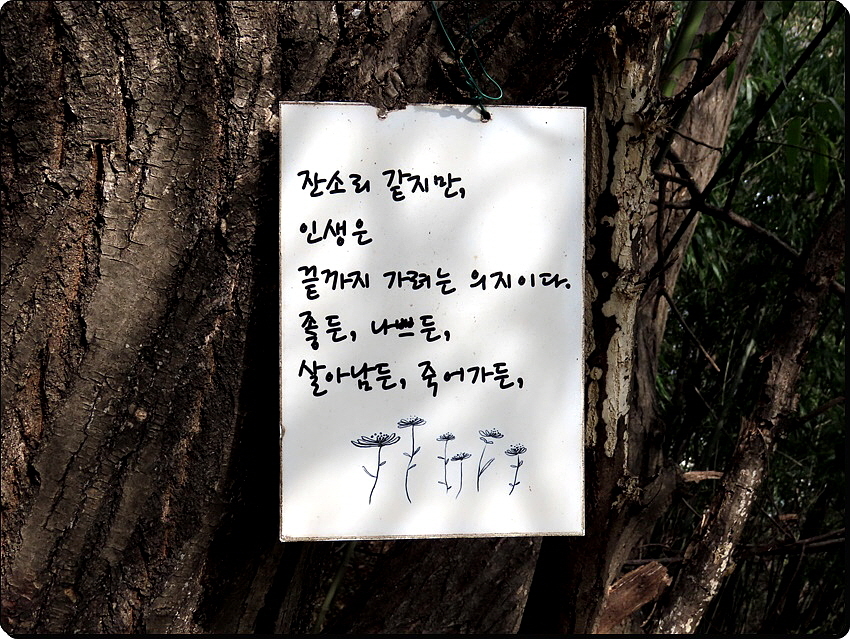 잔소리 같지만,
인생은
끝까지 가려는 의지이다.
좋든, 나쁘든,
살아남든, 죽어가든,